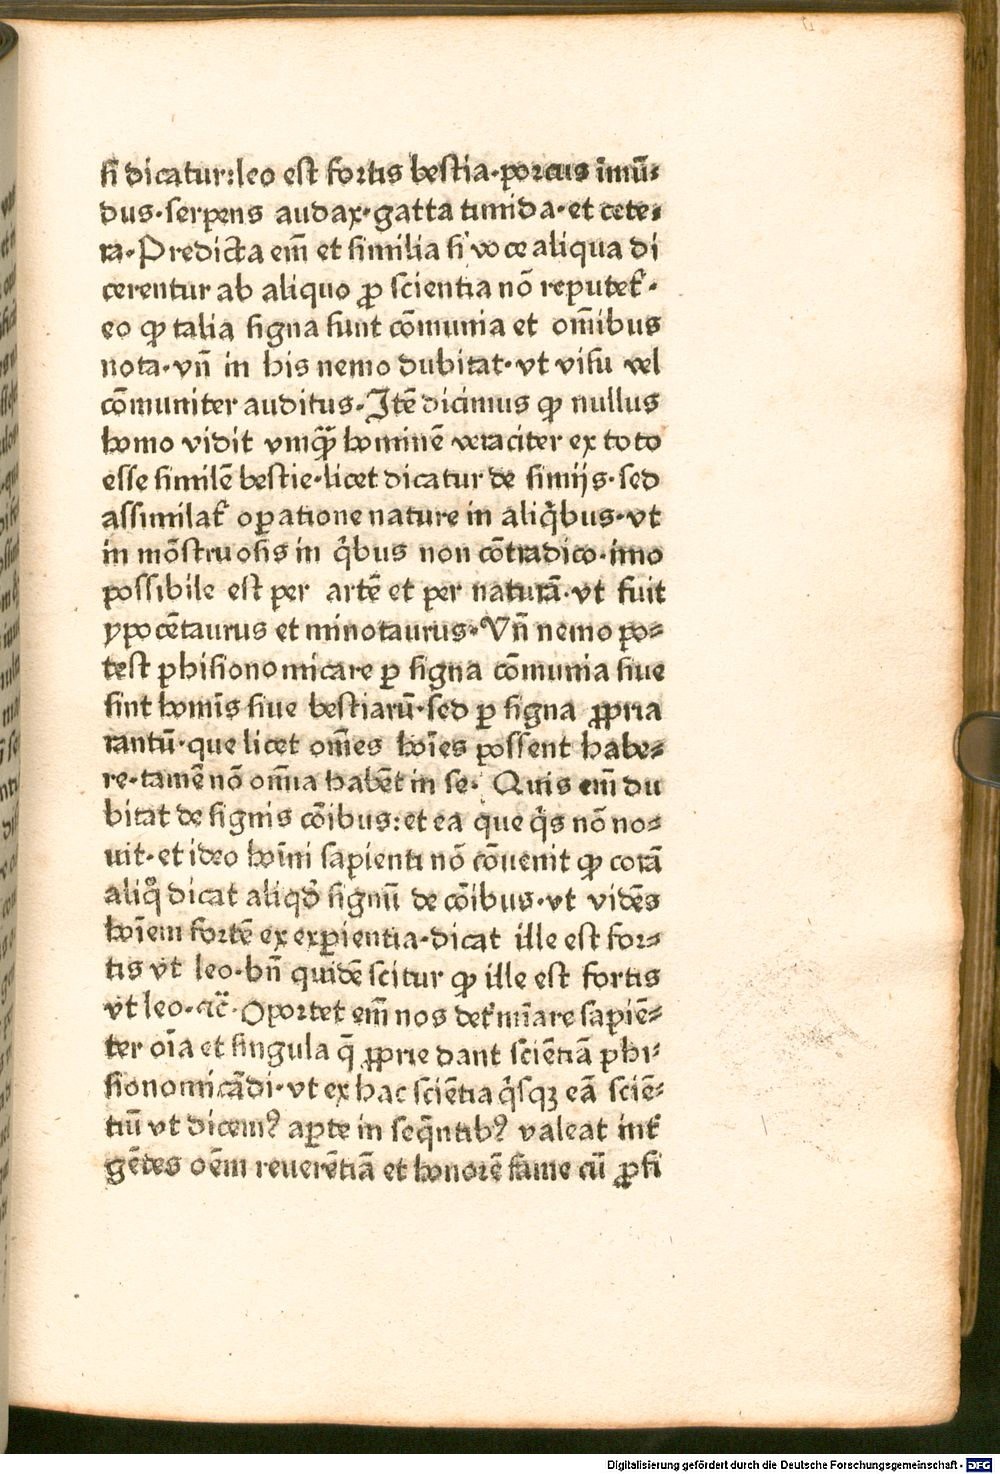 ſi dicatur:leo est fortis bestia·porcus īmū⸗
dus·serpens audax·gatta timida·et cete⸗
ra·Predicta em̄ et similia si voce aliqua di
cerentur ab aliquo ꝓ scientia nō reputet᷑·
eo ꝙ talia signa sunt cōmunia et om̄ibus
nota·vn̄ in his nemo dubitat·vt visu vel
cōmuniter auditus·Itē dicimus ꝙ nullus
homo vidit vmꝙ̄ hominē veraciter ex toto
esse similē bestie·licet dicatur de simijs·sed
assimilat᷑ oꝑatione nature in aliq̇bus·vt
in mōstruosis in q̇bus non cōtradico·imo
possibile est per artē et per naturā·vt fuit
ypocētaurus et minotaurus·Vn̄ nemo po⸗
test phisionomicare ꝑ signa cōmunia siue
sint homīs siue bestiarū·sed ꝑ signa ꝓpria
tantū·que licet om̄es hoīes possent habe⸗
re·tamē nō om̄ia habēt in se· Quis em̄ du
bitat de signis cōibus:et ea que q̇s nō no⸗
uit·et ideo hoīni sapienti nō cōuenit ꝙ corā
aliq̊ dicat aliqd̓ signū de cōibus·vt vidēs
hoīem fortē ex exꝑientia·dicat ille est for⸗
tis vt leo·bn̄ quidē scitur ꝙ ille est fortis
vt leo·⁊c̄·Oportet em̄ nos det᷑mīare sapiē⸗
ter oīa et singula q̄ ꝓprie dant sciētiā phi⸗
sionomicādi·vt ex hac sciētia q̇sqꝫ eā sciē⸗
tiū vt dicemꝰ aꝑte in seq̄ntibꝰ valeat int᷑
gētes oēm reuerētiā et honorē fame cū ꝓfi
Digitalisierung gefördert durch die Deutsche Forschungsgemeinschaft - DFG